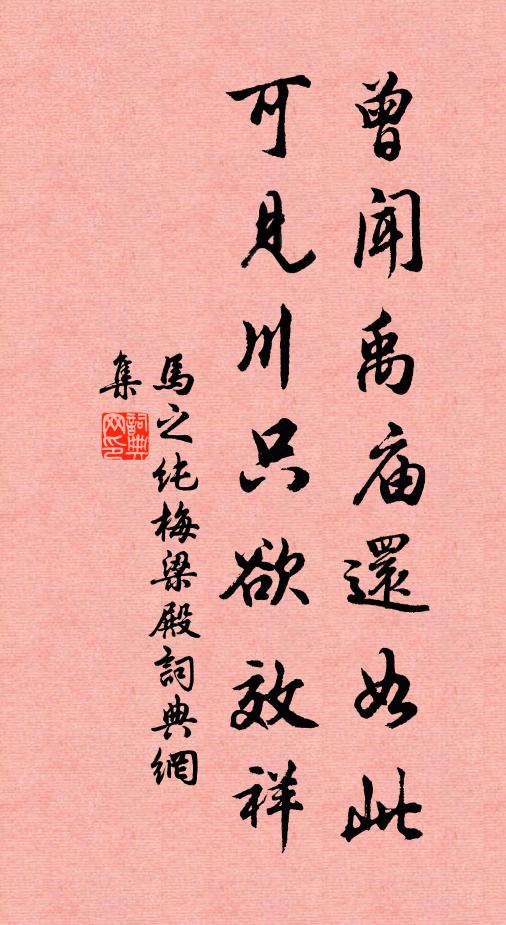 曾聞禹庙還如此
可見川只欲效祥
馬之純梅梁殿詞典網
集
詞典
网印